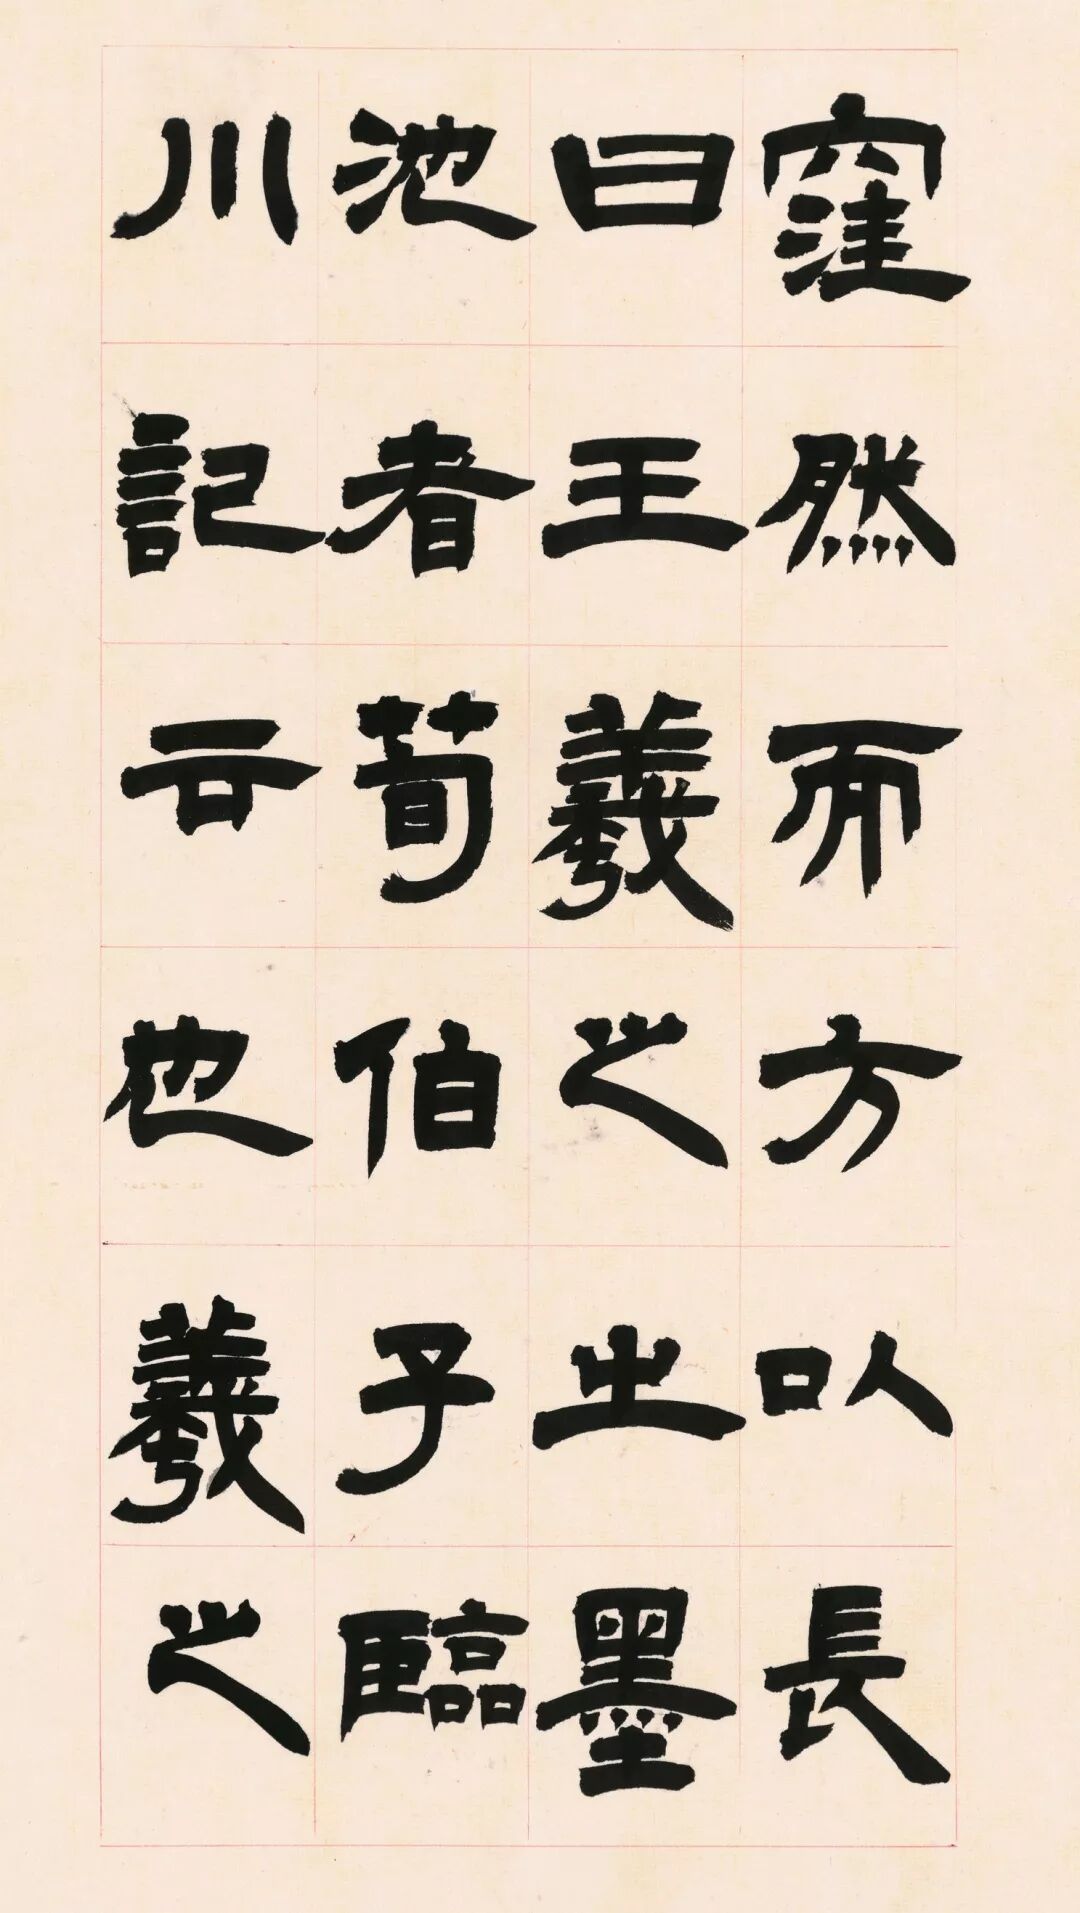 窪然而方以長
曰王羲之之墨
池者荀伯子臨
川記云也羲之